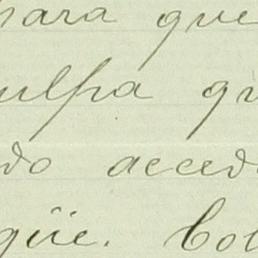 para que
ulpa qu
do acced
güe. Col